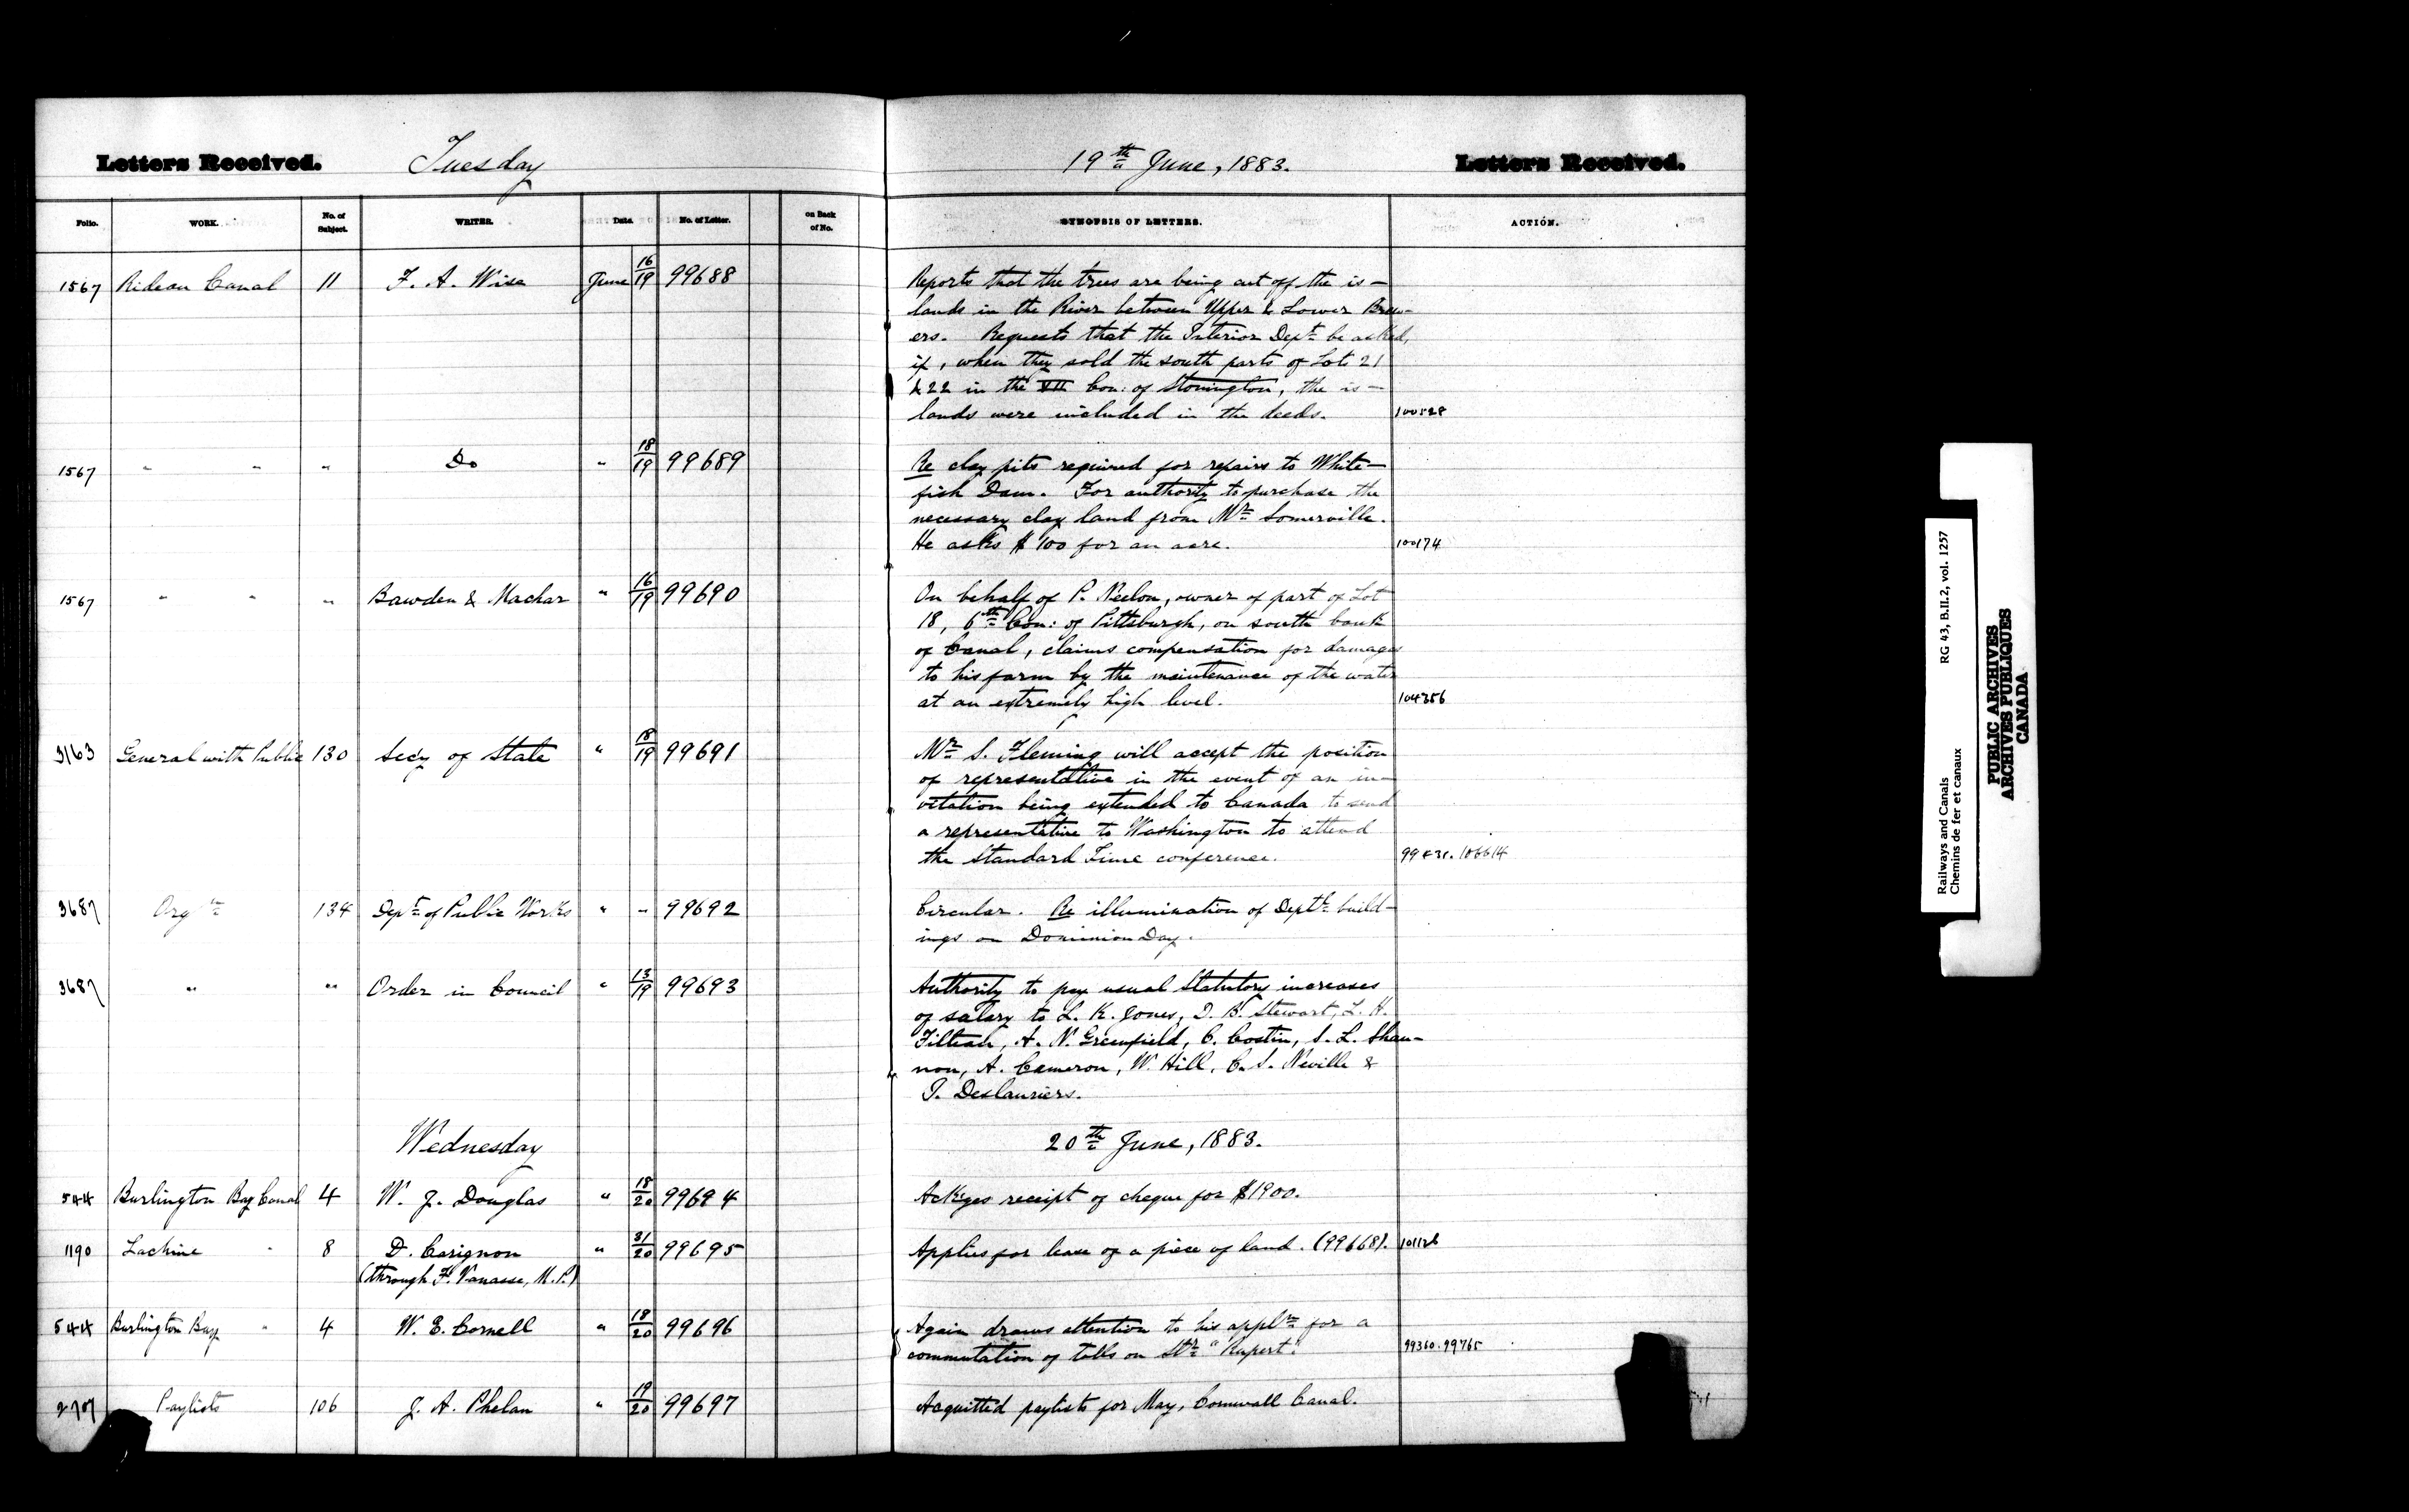 Letters Received. Tuesday 19th June, 1883. Letters Received.
Folio. WORK. No. of Subject. WRITER. Date. No. of Letter. on Back of No. SYNOPSIS OF LETTERS. ACTION.
1567 Rideau Canal 11 F. A. Wise June 16/19 99688 Reports that the trees are being cut off the is-
lands in the River between Upper & Lower Brew-
ers. Requests that the Interior Dept be asked,
if, when they sold the south parts of Lots 21
& 22 in the VII Con: of Storrington, the is-
lands were included in the deeds. 100528
1567 " " " Do " 18/19 99689 Re clay pits required for repairs to White-
fish Dam. For authority to purchase the
necessary clay land from Mr Somerville.
He asks $100 for an acre. 100174
1567 " " " Bawden & Machar " 16/19 99690 On behalf of P. Neelon, owner of part of Lot
18, 6th Con: of Pittsburgh, on south bank
of Canal, claims compensation for damages
to his farm by the maintenance of the water
at an extremely high level. 104356
3163 General with Public 130 Secy of State " 18/19 99691 Mr S. Fleming will accept the position
of representative in the event of an in-
vitation being extended to Canada to send
a representative to Washington to attend
the Standard Time conference. 106614
3687 Orgtn 134 Dept of Public Works " - 99692 Circular. Re illumination of Deptl build-
ings on Dominion Day.
3687 " " Order in Council " 13/19 99693 Authority to pay usual Statutory increases
of salary to L. K. Jones, D. B. Stewart, L. H.
Filteau, A. N. Greenfield, C. Costin, S. L. Shan-
non, A. Cameron, W. Hill, C. S. Neville &
T. Deslauriers.
Wednesday 20th June, 1883.
544 Burlington Bay Canal 4 W. J. Douglas " 18/20 99694 Ackges receipt of cheque for $1900.
1190 Lachine " 8 D. Carignon " 31/20 99695 Applies for lease of a piece of land. (99668).
(through F. Vanasse, M.P.)
544 Burlington Bay " 4 W. E. Cornell " 18/20 99696 Again draws attention to his appltn for a
commutation of tolls on Str "Rupert". 99360. 99765
2707 Paylists 106 J. A. Phelan " 19/20 99697 Acquitted paylists for May, Cornwall Canal.
Railways and Canals RG 43, B.II.2, vol. 1257
Chemins de fer et canaux
PUBLIC ARCHIVES
ARCHIVES PUBLIQUES
CANADA